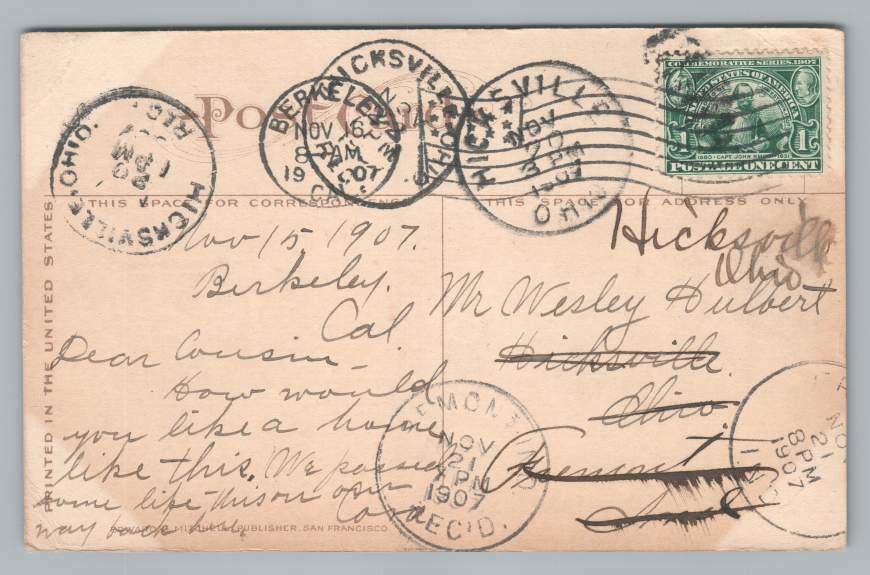 Post Card
HICKSVILLE, OHIO.
REC'D
1 PM
BERKELEY
NOV 16
8 AM
1907
CAL.
HICKSVILLE
HICKSVILLE
NOV
20
3 PM
1907
OHIO
COMMEMORATIVE SERIES, 1907
UNITED STATES OF AMERICA
1 1
1580 CAPT. JOHN SMITH 1631
POSTAGE ONE CENT
THIS SPACE FOR CORRESPONDENCE
THIS SPACE FOR ADDRESS ONLY
PRINTED IN THE UNITED STATES
Nov 15 1907.
Berkeley.
Cal
Dear Cousin
How would
you like a home
like this. We passed
some like this on our
way back
Hicksville
Ohio
Mr Wesley Hulbert
Hicksville
Ohio.
Fremont
Ind
NOV
21
PM
1907
REC'D.
NOV
21
8 PM
1907
IND
MITCHELL, PUBLISHER, SAN FRANCISCO